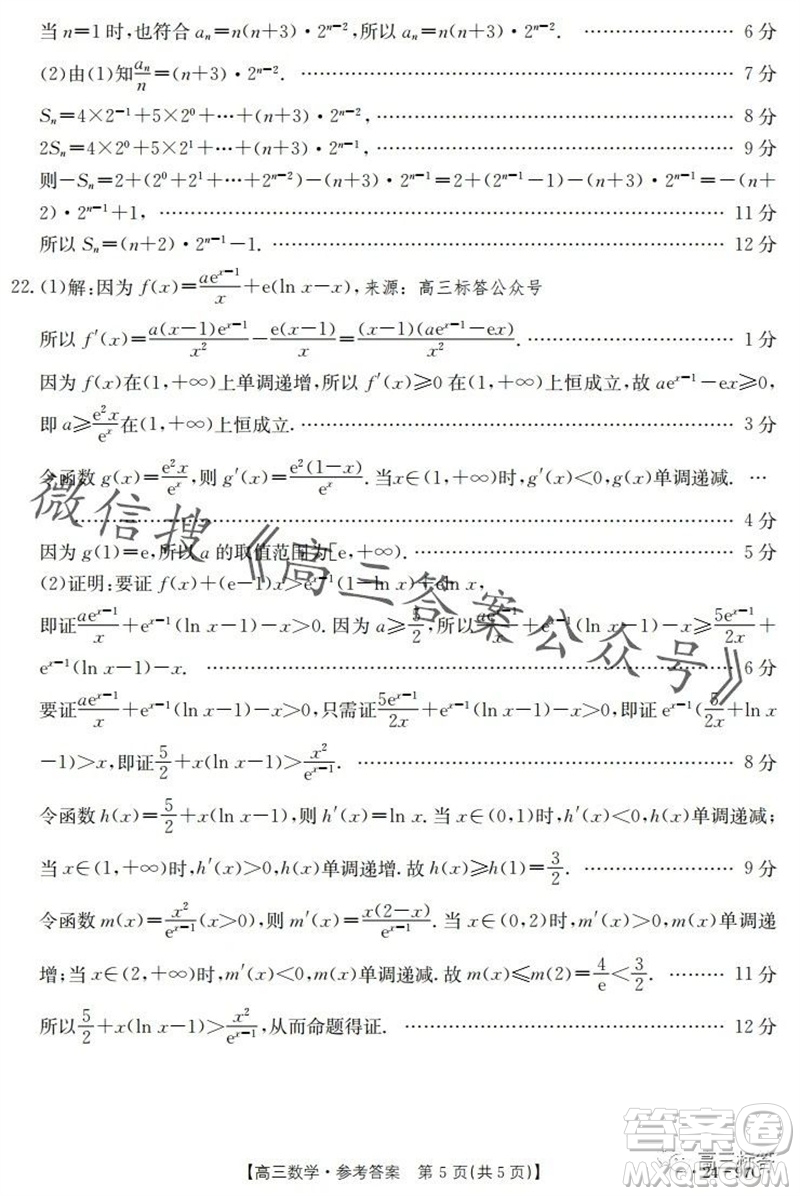 当 n=1 时,也符合 aₙ=n(n+3)·2ⁿ⁻²,所以 aₙ=n(n+3)·2ⁿ⁻². ………………… 6 分
(2)由(1)知 aₙ/n=(n+3)·2ⁿ⁻². ………………… 7 分
Sₙ=4×2⁻¹+5×2⁰+…+(n+3)·2ⁿ⁻², ………………… 8 分
2Sₙ=4×2⁰+5×2¹+…+(n+3)·2ⁿ⁻¹, ………………… 9 分
则−Sₙ=2+(2⁰+2¹+…+2ⁿ⁻²)−(n+3)·2ⁿ⁻¹=2+(2ⁿ⁻¹−1)−(n+3)·2ⁿ⁻¹=−(n+
2)·2ⁿ⁻¹+1, ………………… 11 分
所以 Sₙ=(n+2)·2ⁿ⁻¹−1. ………………… 12 分
22.(1)解:因为 f(x)=aeˣ⁻¹/x+e(ln x−x),来源:高三标答公众号
所以 f′(x)=a(x−1)eˣ⁻¹/x²−e(x−1)/x=(x−1)(aeˣ⁻¹−ex)/x². ………………… 1 分
因为 f(x)在(1,+∞)上单调递增,所以 f′(x)≥0 在(1,+∞)上恒成立,故 aeˣ⁻¹−ex≥0,
即 a≥e²x/eˣ在(1,+∞)上恒成立. ………………… 3 分
令函数 g(x)=e²x/eˣ,则 g′(x)=e²(1−x)/eˣ.当 x∈(1,+∞)时,g′(x)<0,g(x)单调递减. …
………………… 4 分
因为 g(1)=e,所以 a 的取值范围为[e,+∞). ………………… 5 分
(2)证明:要证 f(x)+(e−1)x>eˣ⁻¹(1−ln x)+eln x,
即证aeˣ⁻¹/x+eˣ⁻¹(ln x−1)−x>0.因为 a≥5/2,所以aeˣ⁻¹/x+eˣ⁻¹(ln x−1)−x≥5eˣ⁻¹/2x+
eˣ⁻¹(ln x−1)−x. ………………… 6 分
要证aeˣ⁻¹/x+eˣ⁻¹(ln x−1)−x>0,只需证5eˣ⁻¹/2x+eˣ⁻¹(ln x−1)−x>0,即证 eˣ⁻¹(5/2x+ln x
−1)>x,即证5/2+x(ln x−1)>x²/eˣ⁻¹. ………………… 8 分
令函数 h(x)=5/2+x(ln x−1),则 h′(x)=ln x.当 x∈(0,1)时,h′(x)<0,h(x)单调递减;
当 x∈(1,+∞)时,h′(x)>0,h(x)单调递增.故 h(x)≥h(1)=3/2. ………………… 9 分
令函数 m(x)=x²/eˣ⁻¹(x>0),则 m′(x)=x(2−x)/eˣ⁻¹.当 x∈(0,2)时,m′(x)>0,m(x)单调递
增;当 x∈(2,+∞)时,m′(x)<0,m(x)单调递减.故 m(x)≤m(2)=4/e<3/2. ……… 11 分
所以5/2+x(ln x−1)>x²/eˣ⁻¹,从而命题得证. ………………… 12 分
微信搜《高三答案公众号》
【高三数学·参考答案 第 5 页(共 5 页)】
答案圈
高三标答
·24−97C·
MXQE.COM